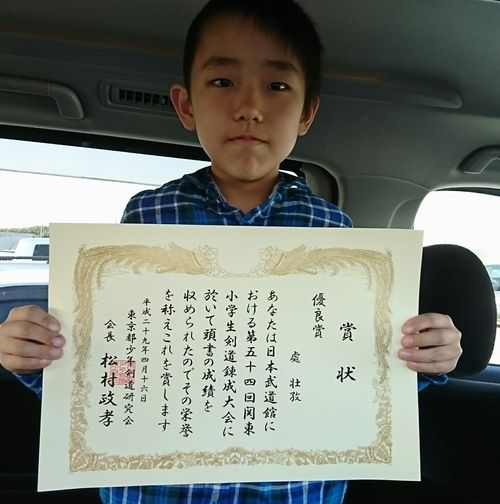 賞状
優良賞
處 壮孜
あなたは日本武道館に
おける第五十四回関東
小学生剣道錬成大会に
於いて頭書の成績を
収められたのでその栄誉
を称えこれを賞します
平成二十九年四月十六日
東京都少年剣道研究会
会長 松村政孝